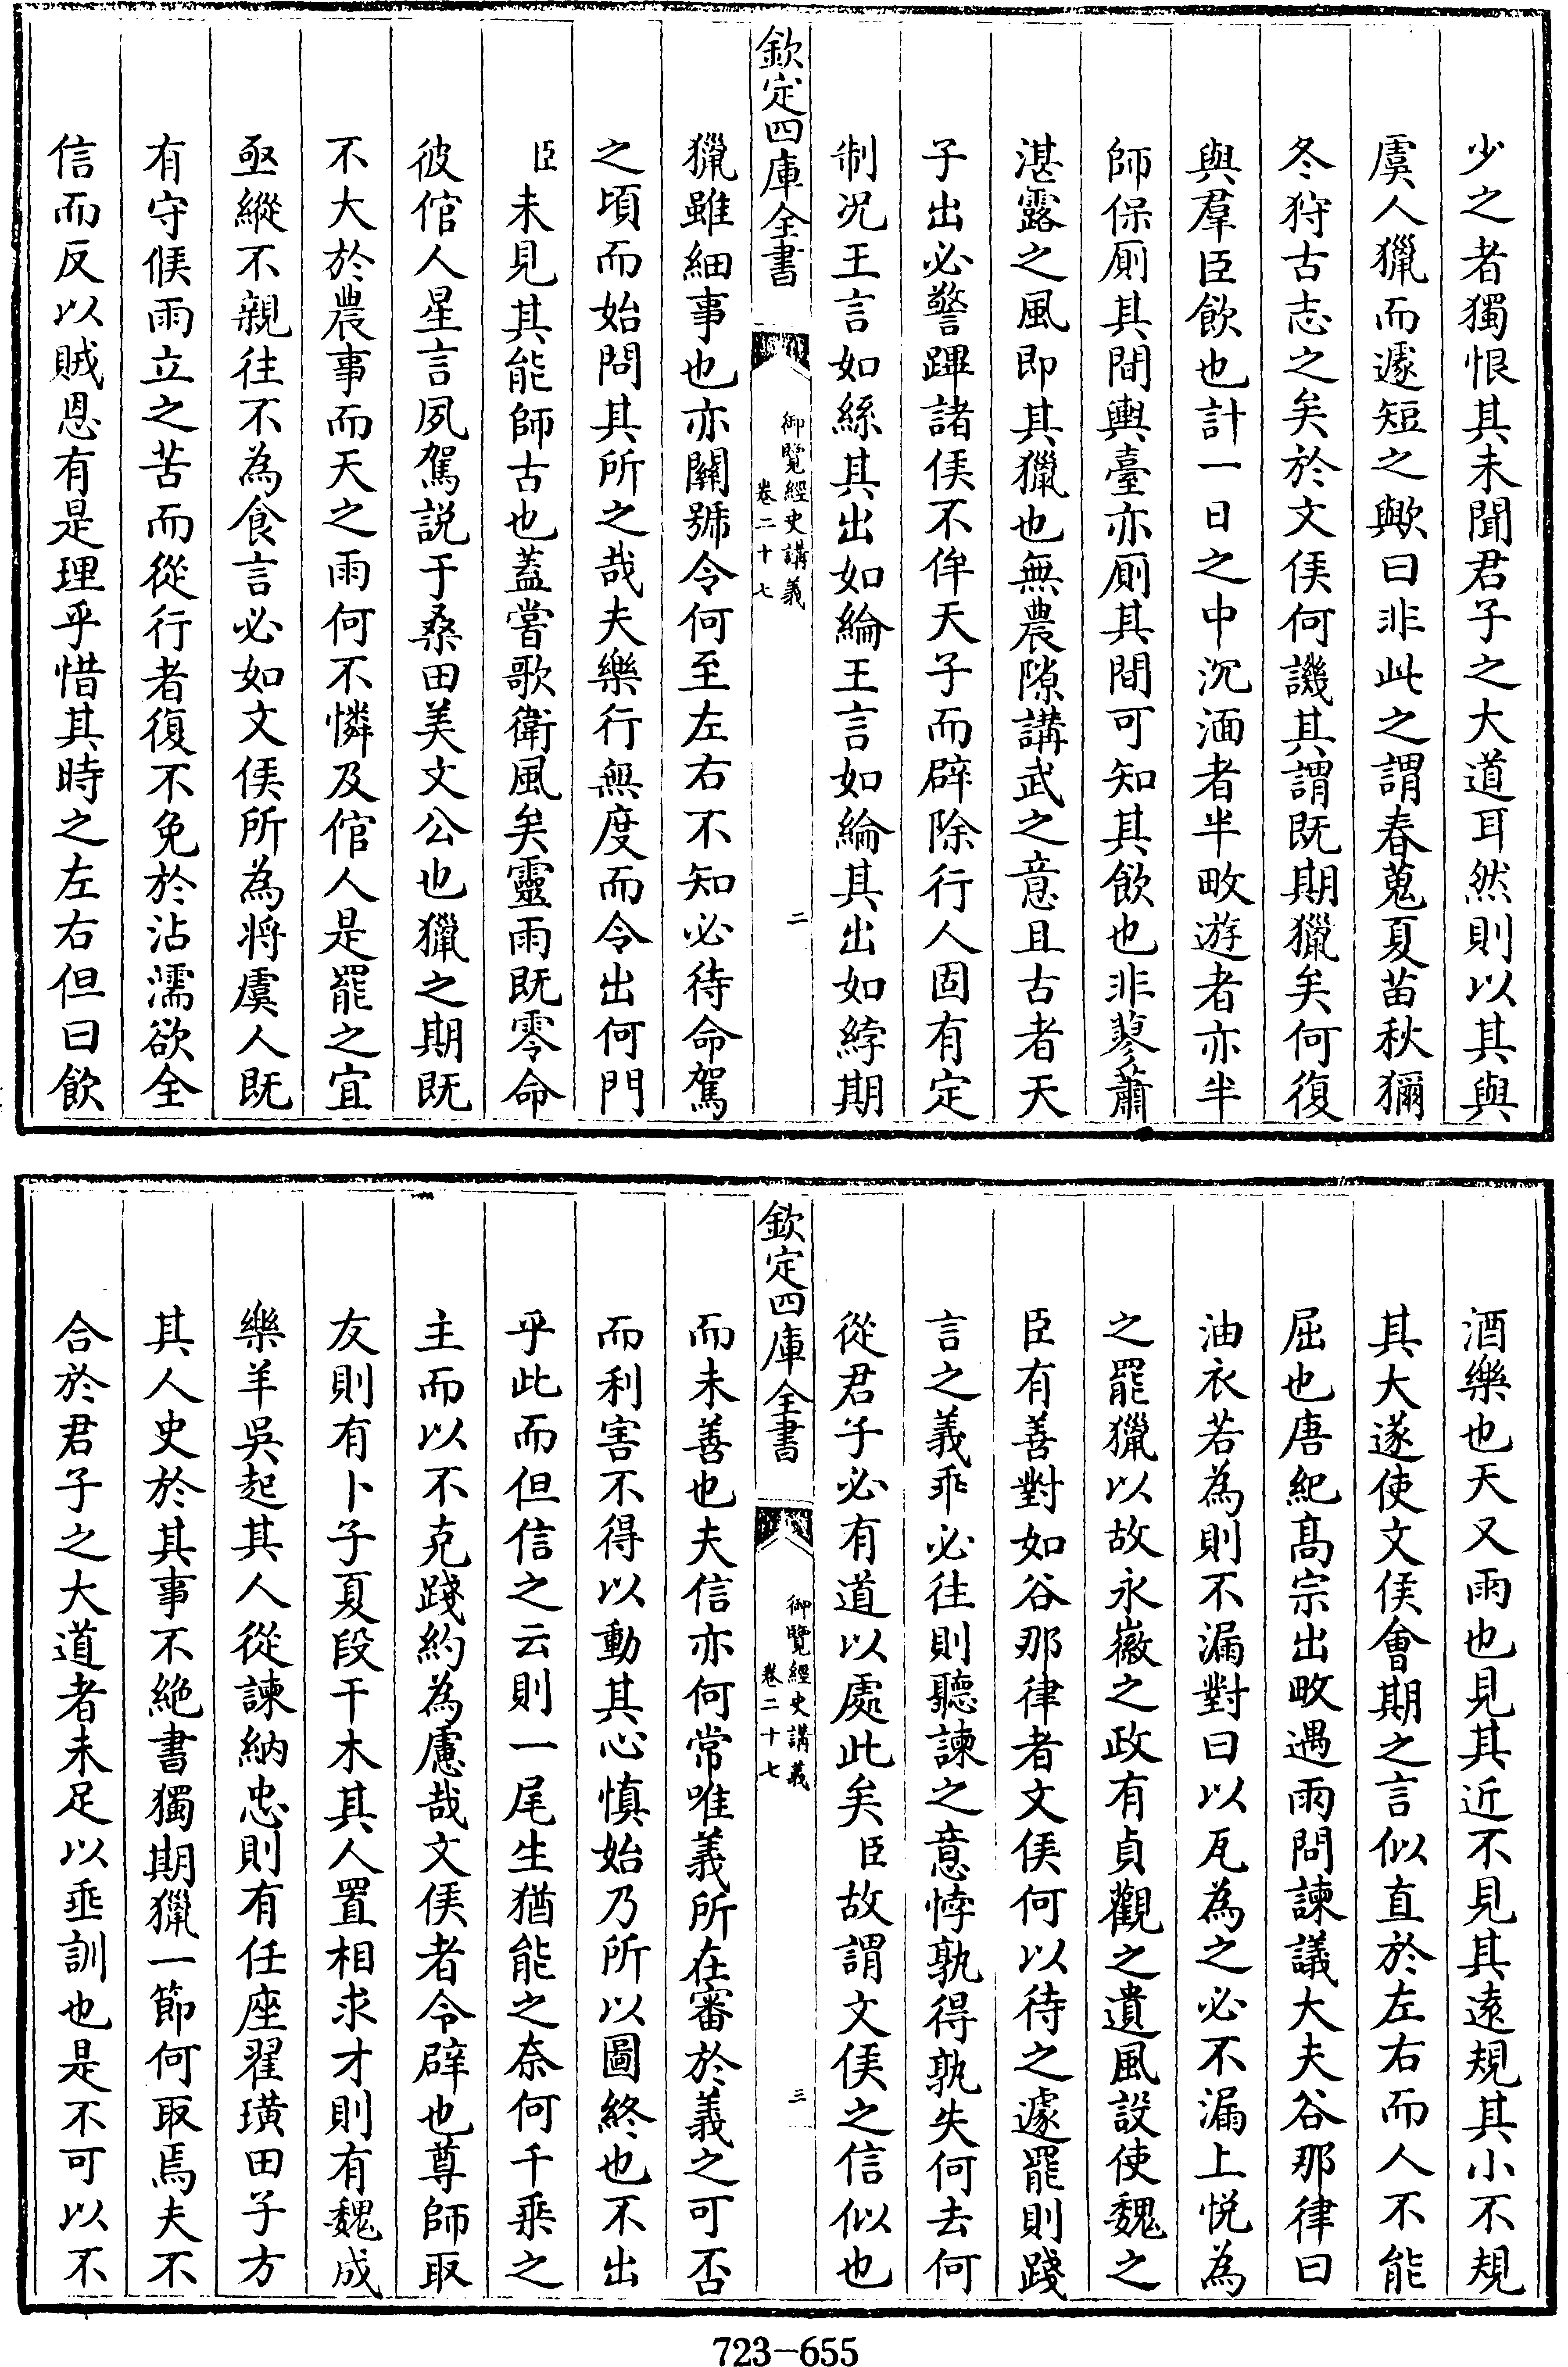 少之者獨恨其未聞君子之大道耳然則以其與
虞人獵而遽短之歟曰非此之謂春蒐夏苗秋獮
冬狩古志之矣於文侯何譏其謂既期獵矣何復
與羣臣飲也計一日之中沉湎者半畋遊者亦半
師保厠其間輿臺亦厠其間可知其飲也非蓼蕭
湛露之風即其獵也無農隙講武之意且古者天
子出必警蹕諸侯不侔天子而辟除行人固有定
制况王言如絲其出如綸王言如綸其出如綍期
欽定四庫全書
御覽經史講義
卷二十七
二
獵雖細事也亦關號令何至左右不知必待命駕
之頃而始問其所之哉夫樂行無度而令出何門
臣未見其能師古也蓋嘗歌衛風矣靈雨既零命
彼倌人星言夙駕說于桑田美文公也獵之期既
不大於農事而天之雨何不憐及倌人是罷之宜
亟縱不親往不為食言必如文侯所為將虞人既
有守候雨立之苦而從行者復不免於沾濡欲全
信而反以賊恩有是理乎惜其時之左右但曰飲
酒樂也天又雨也見其近不見其遠規其小不規
其大遂使文侯會期之言似直於左右而人不能
屈也唐紀高宗出畋遇雨問諫議大夫谷那律曰
油衣若為則不漏對曰以瓦為之必不漏上悅為
之罷獵以故永徽之政有貞觀之遺風設使魏之
臣有善對如谷那律者文侯何以待之遽罷則踐
言之義乖必往則聽諫之意悖孰得孰失何去何
從君子必有道以處此矣臣故謂文侯之信似也
欽定四庫全書
御覽經史講義
卷二十七
三
而未善也夫信亦何常唯義所在審於義之可否
而利害不得以動其心慎始乃所以圖終也不出
乎此而但信之云則一尾生猶能之奈何千乘之
主而以不克踐約為慮哉文侯者令辟也尊師取
友則有卜子夏段干木其人置相求才則有魏成
樂羊吳起其人從諫納忠則有任座翟璜田子方
其人史於其事不絕書獨期獵一節何取焉夫不
合於君子之大道者未足以垂訓也是不可以不
723-655